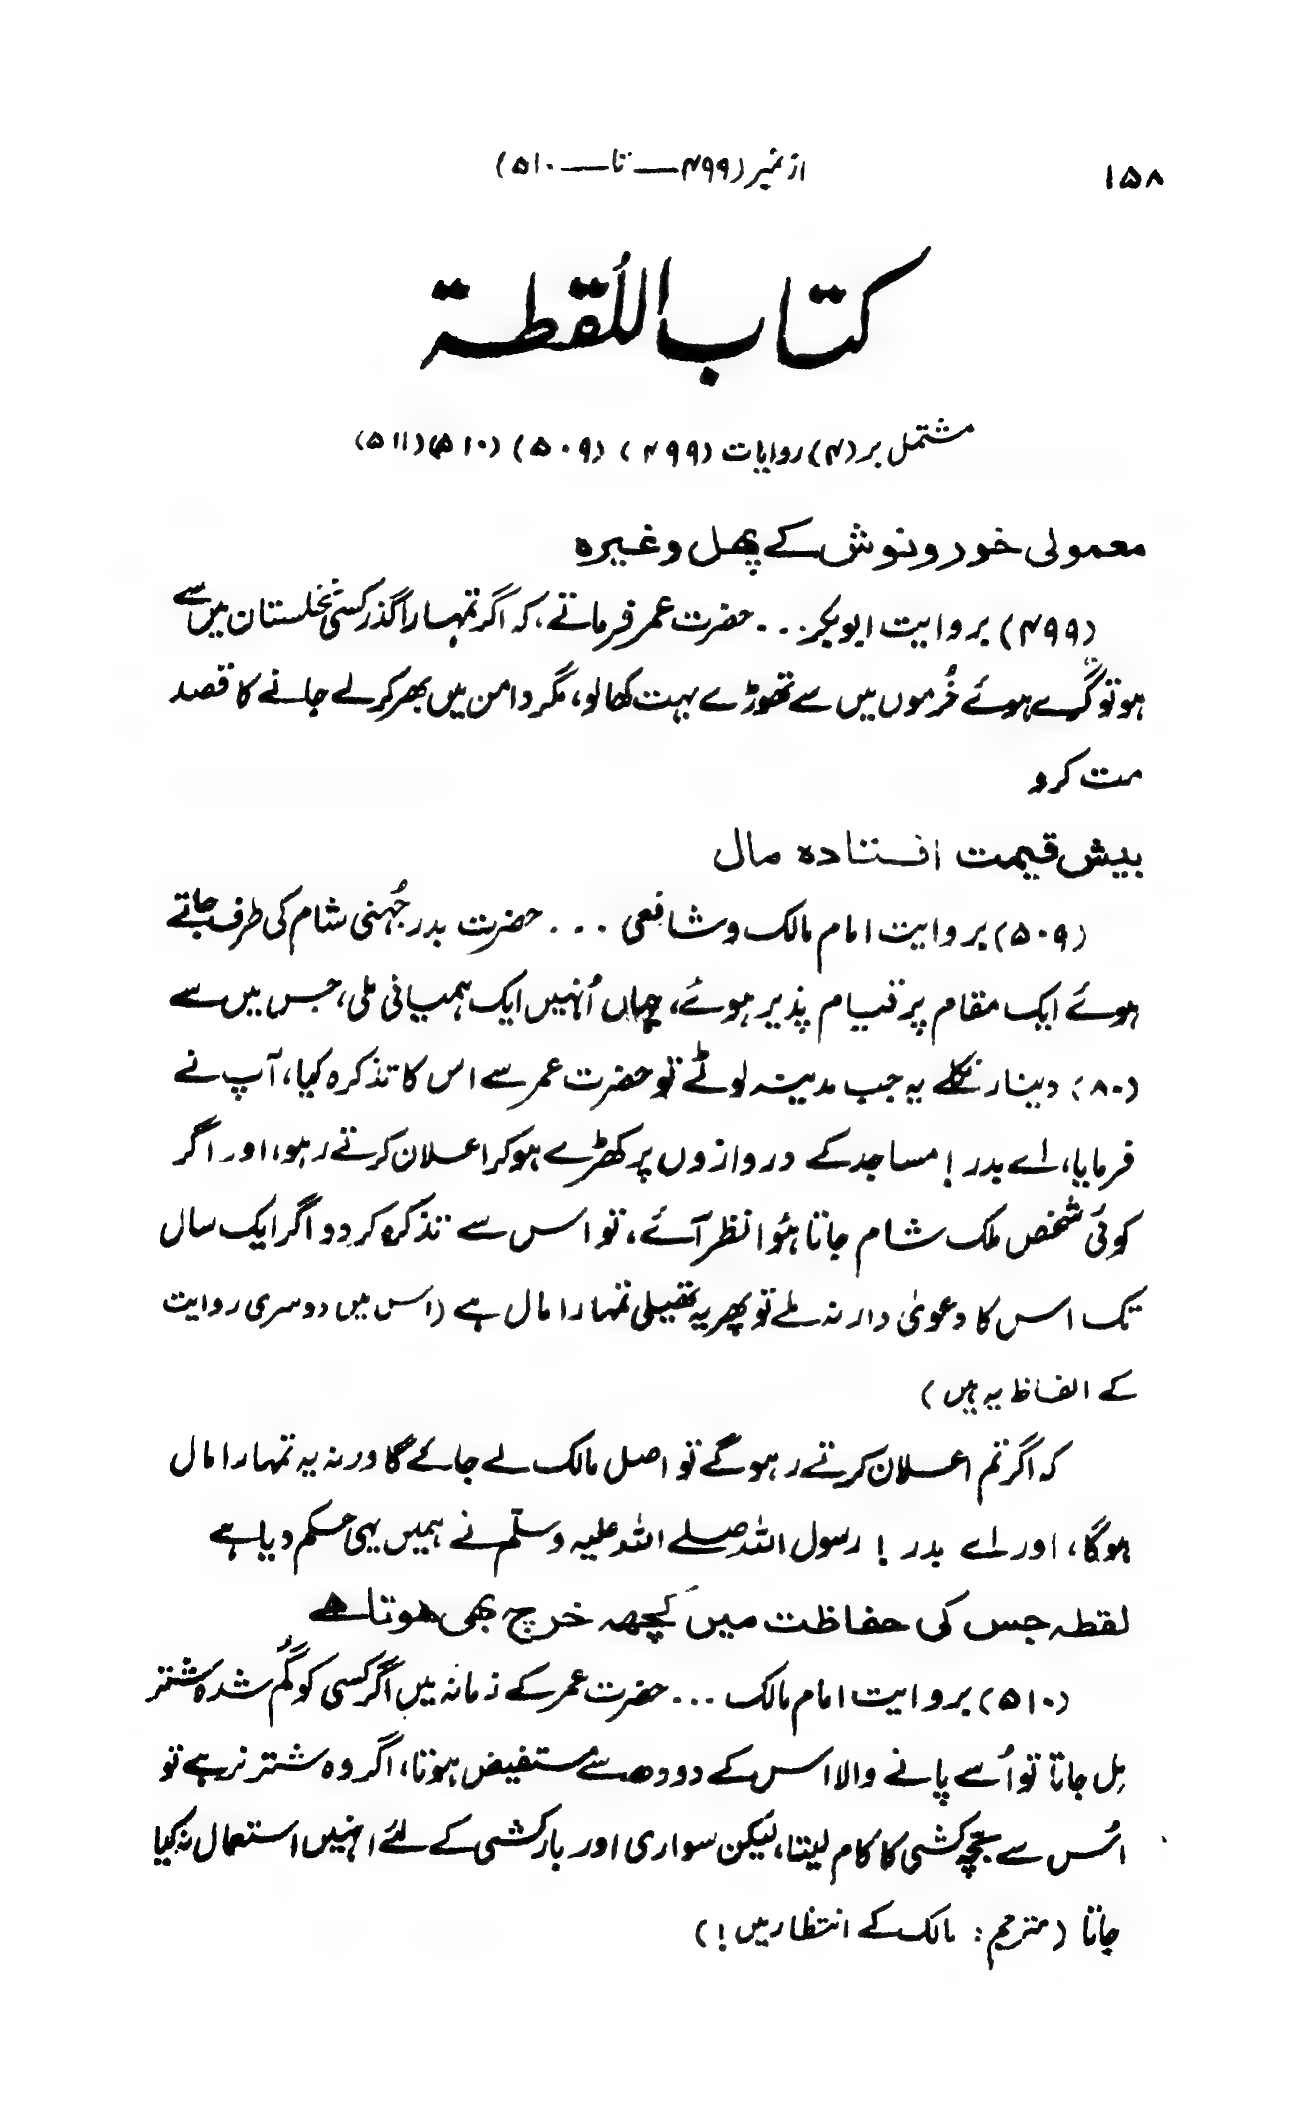 ۱۵۸
از نمبر (۴۹۹ — تا — ۵۱۰)
کتاب اللُقطۃ
مشتمل بر (۴) روایات (۴۹۹) (۵۰۹) (۵۱۰) (۵۱۱)
معمولی خورونوش کے پھل وغیرہ
(۴۹۹) بروایت ابوبکر ... حضرت عمر فرماتے، کہ اگر تمہارا گذر کسی نخلستان میں سے
ہو تو گرے ہوئے خُرموں میں سے تھوڑے بہت کھا لو، مگر دامن میں بھر کر لے جانے کا قصد
مت کرو
بیش قیمت افتادہ مال
(۵۰۹) بروایت امام مالک و شافعی ... حضرت بدر جُہنی شام کی طرف جاتے
ہوئے ایک مقام پر قیام پذیر ہوئے، جہاں اُنہیں ایک ہمیانی ملی، جس میں سے
(۸۰) دینار نکلے یہ جب مدینہ لوٹے تو حضرت عمر سے اس کا تذکرہ کیا، آپ نے
فرمایا، اے بدر! مساجد کے دروازوں پر کھڑے ہو کر اعلان کرتے رہو، اور اگر
کوئی شخص ملک شام جاتا ہؤا نظر آئے، تو اس سے تذکرہ کر دو اگر ایک سال
تک اس کا دعویٰ دار نہ ملے تو پھر یہ تھیلی تمہارا مال ہے (اس میں دوسری روایت
کے الفاظ یہ ہیں)
کہ اگر تم اعلان کرتے رہو گے تو اصل مالک لے جائے گا ورنہ یہ تمہارا مال
ہوگا، اور اے بدر! رسول اللہ صلے اللہ علیہ وسلّم نے ہمیں یہی حکم دیا ہے
لقطہ جس کی حفاظت میں کچھ خرچ بھی ہوتا ہے
(۵۱۰) بروایت امام مالک ... حضرت عمر کے زمانہ میں اگر کسی کو گُم شدہ شتر
مِل جاتا تو اُسے پانے والا اس کے دودھ سے مُستفیض ہوتا، اگر وہ شتر نر ہے تو
اُس سے بچہ کشی کا کام لیتا، لیکن سواری اور بار کشی کے لئے انہیں استعمال نہ کیا
جاتا (مترجم: مالک کے انتظار میں!)